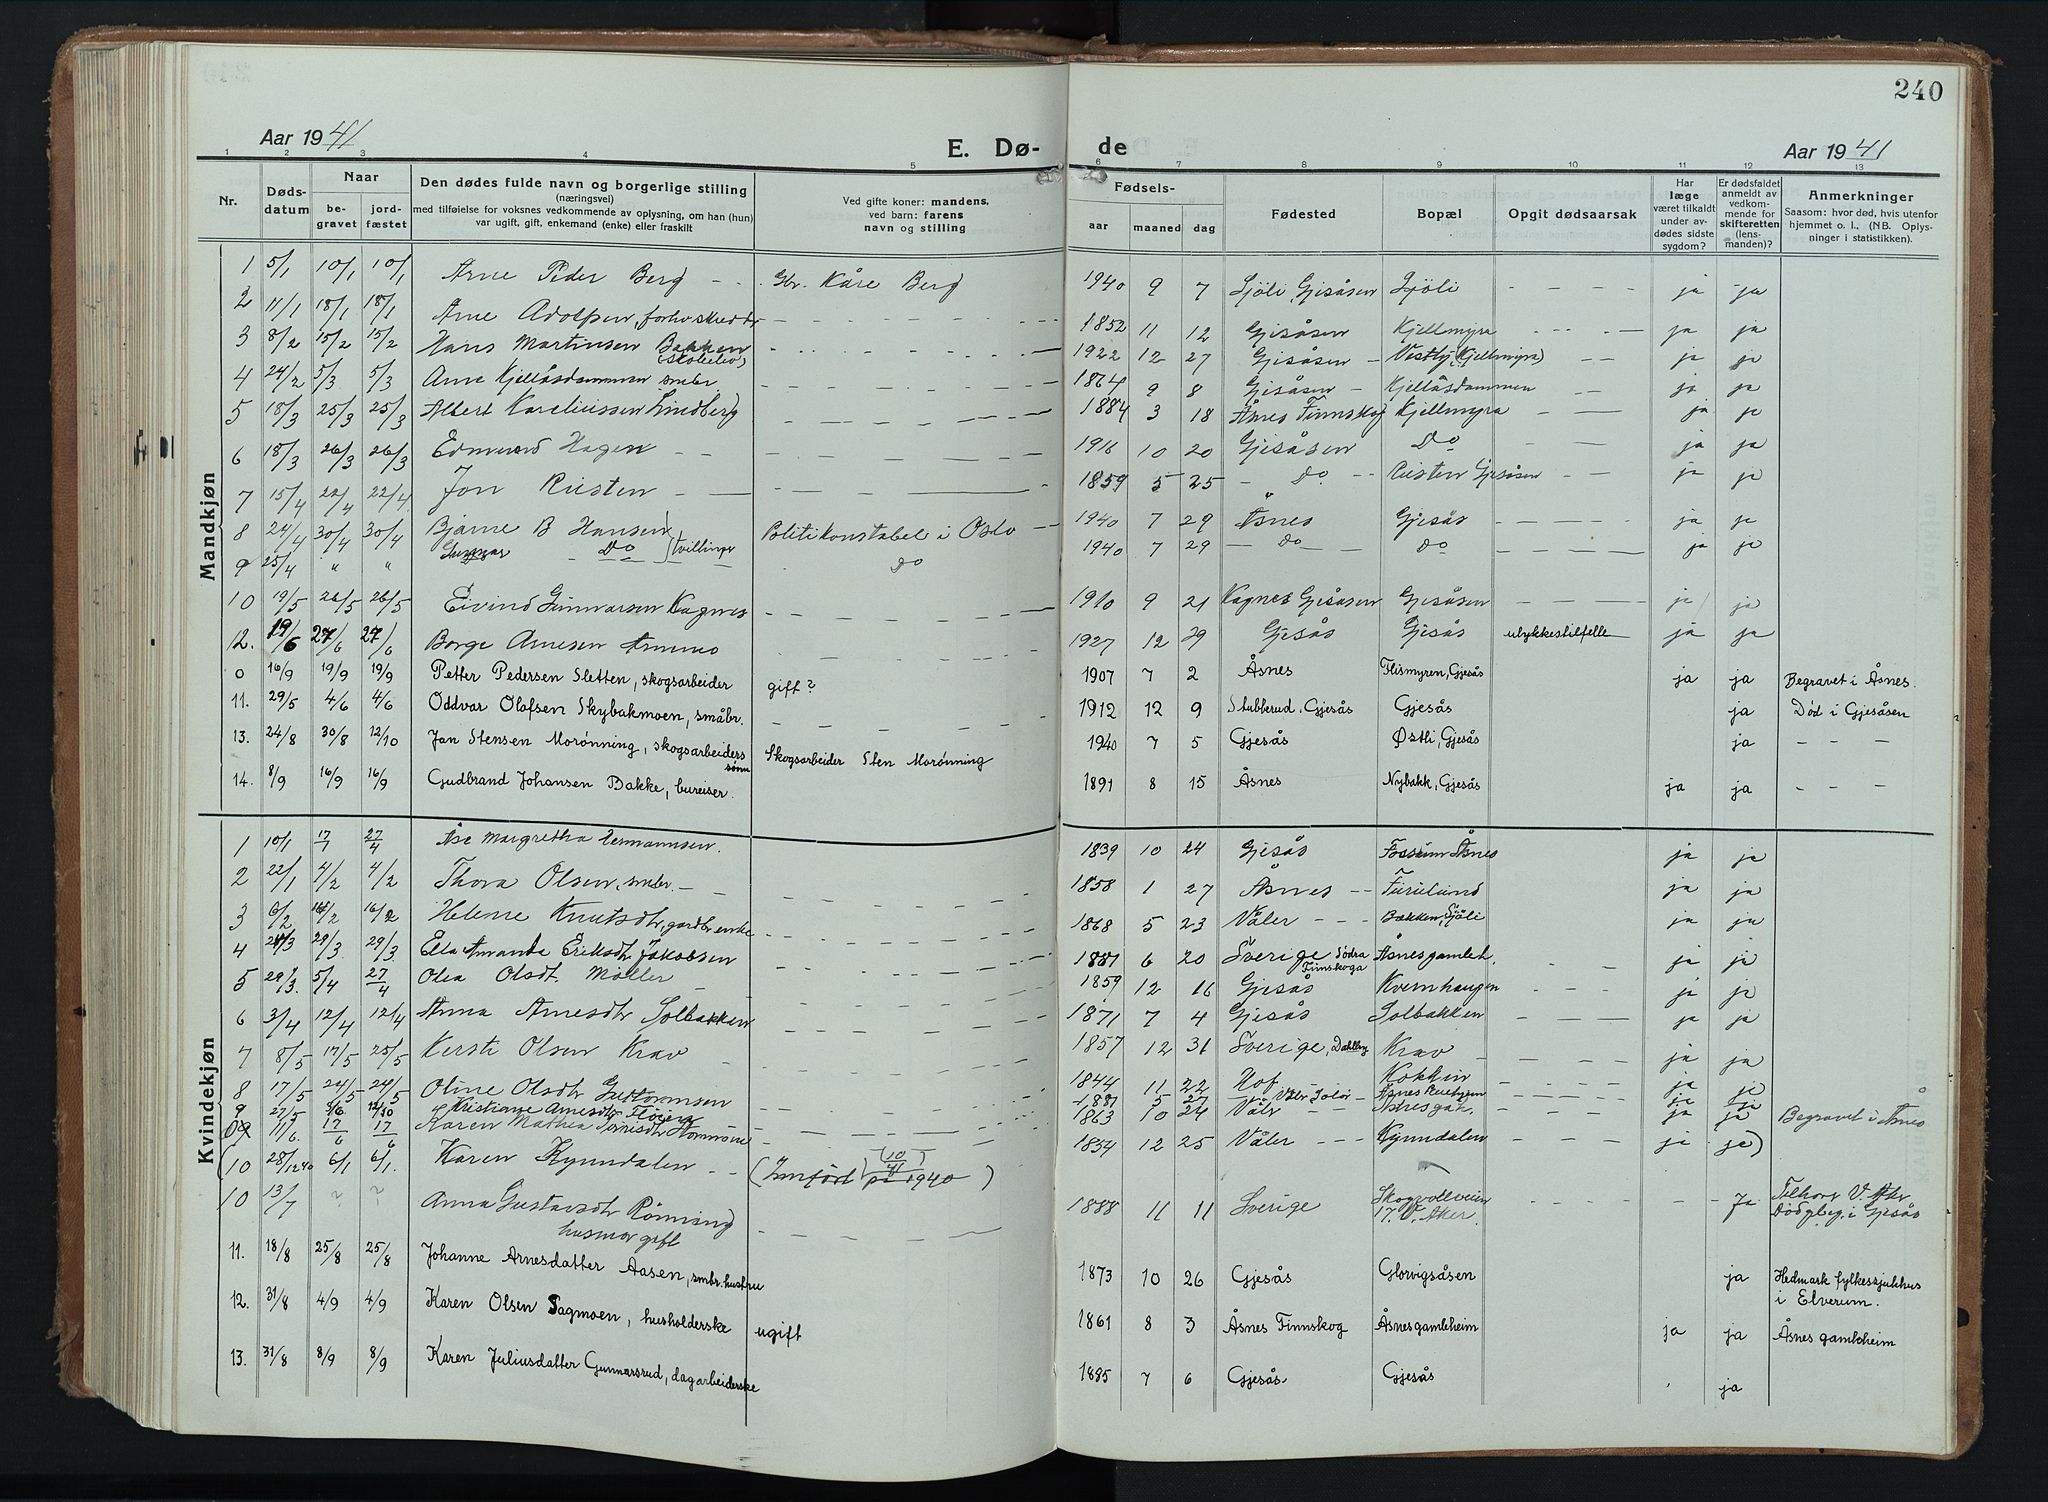 240
Aar 1941
E. Dø-
de
Aar 1941
1 2 3 4 5 6 7 8 9 10 11 12 13
Nr.
Døds-datum
Naar
be-gravet
jord-fæstet
Den dødes fulde navn og borgerlige stilling
(næringsvei)
med tilføielse for voksnes vedkommende av oplysning, om han (hun)
var ugift, gift, enkemand (enke) eller fraskilt
Ved gifte koner: mandens,
ved barn: farens
navn og stilling
Fødsels-
aar maaned dag
Fødested
Bopæl
Opgit dødsaarsak
Har læge været tilkaldt under av-dødes sidste sygdom?
Er dødsfaldet anmeldt av vedkom-mende for skifteretten (lens-manden)?
Anmerkninger
Saasom: hvor død, hvis utenfor
hjemmet o. l., (NB. Oplys-
ninger i statistikken).
Mandkjøn
1 5/1 10/1 10/1 Arne Peder Berg - - Gbr. Kåre Berg 1940 9 7 Sjöli, Gjisåsen Sjöli - - - - ja ja
2 11/1 18/1 18/1 Arne Adolfsen, forhv. skredder 1852 11 12 Gjisåsen Kjellmyra ja ja
3 8/2 15/2 15/2 Hans Martinsen Bakken (skoleelev) 1922 12 27 Gjisåsen Vestby (Kjellmyra) ja ja
4 24/2 5/3 5/3 Arne Kjellåsdammen smbr. 1864 9 8 Gjisåsen Kjellåsdammen ja ja
5 18/3 25/3 25/3 Albert Kareliussen Lindberg 1884 3 18 Åsnes Finnskog Kjellmyra ja ja
6 18/3 26/3 26/3 Edmund Hagen - - 1916 10 20 Gjisåsen Do ja ja
7 15/4 22/4 22/4 Jon Risten 1859 5 25 Do Risten Gjesåsen ja ja
8 24/4 30/4 30/4 Bjarne B Hansen Politikonstabel i Oslo 1940 7 29 Åsnes Gjesås ja ja
9 25/4 " " Gunnar Do } tvillinger Do 1940 7 29 Do Do ja ja
10 19/5 26/5 26/5 Eivind Gunnarsen Kagnes 1910 9 21 Kagnes Gjisåsen Gjesåsen ja ja
12. 19/6 27/6 27/6 Borge Arnesen Armmo 1927 12 29 Gjesås Gjesås ulykkestilfelle ja ja
0 16/9 19/9 19/9 Petter Pedersen Sletten, skogsarbeider gift? 1907 7 2 Åsnes Flismyren, Gjesås ja ja Begravet i Åsnes.
11. 29/5 4/6 4/6 Oddvar Olafsen Skybakmoen, småbr. 1912 12 9 Stubberud, Gjesås Gjesås ja Død i Gjesåsen
13. 24/8 30/8 12/10 Jan Stensen Morønning, skogsarbeiders sønn Skogsarbeider Sten Morønning 1940 7 5 Gjesås Østli, Gjesås ja - - -
14. 8/9 16/9 16/9 Gudbrand Johansen Bakke, bureiser. 1891 8 15 Åsnes Nybakk, Gjesås ja ja - - -
Kvindekjøn
1 10/1 17/1 27/4 Åse Margretha Hermannsen. 1839 10 24 Gjesås Fossum Åsnes ja ja
2 22/1 4/2 4/2 Thora Olsen, smbr. 1858 1 27 Åsnes Furulund ja ja
3 6/2 16/2 16/2 Helene Knutsdtr, gardbr. enke 1868 5 23 Våler Bakken, Sjöli ja ja
4 24/3 29/3 29/3 Ella Amanda Eriksdtr Jakobsen 1881 6 20 Sverige Södra Finnskoga Åsnes gamleh. ja ja
5 29/3 5/4 27/4 Olea Olsdt. Møller 1859 12 16 Gjesås Kvernhaugen ja ja
6 3/4 12/4 12/4 Anna Arnesdtr Solbakken 1871 7 4 Gjesås Solbakken ja ja
7 8/5 17/5 25/5 Kersti Olsen Krav 1857 12 31 Sverige, Dalby Krav ja ja
8 17/5 24/5 24/5 Oline Olsdtr Guttormsen 1844 11 22 Hof Kokkin ja ja
9 27/5 5/6 12/10 Kristiane Arnesdtr Fløien 1887 5 27 Våler Solør Åsnes ja ja
09 11/6 17/6 17/6 Karen Mathea 1863 10 24 Våler Åsnes gaml. ja ja Begravet i Åsnes
(10 28/12 40 6/1 6/1. Karen Kynndalen - - (Innført på 1940) 10/41 1854 12 25 Våler Kynndalen ja ja)
10 13/7 ? ? Anna Gustavsdtr Rönning husmor gift 1888 11 11 Sverige Skogvollveien 17. V. Aker. Ja Tilhører V. Aker Dødfly. i Gjesås
11. 18/8 25/8 25/8 Johanne Arnesdatter Aasen, smbr. hustru 1873 10 26 Gjesås Glorvigsåsen ja Hedmark fylkessjukhus i Elverum.
12. 31/8 4/9 4/9 Karen Olsen Sagmoen, husholderske ugift 1861 8 3 Åsnes Finnskog Åsnes gamleheim ja ja Åsnes gamleheim
13. 31/8 8/9 8/9 Karen Juliusdatter Gunnarsrud, dagarbeiderske 1885 7 6 Gjesås Gjesås ja